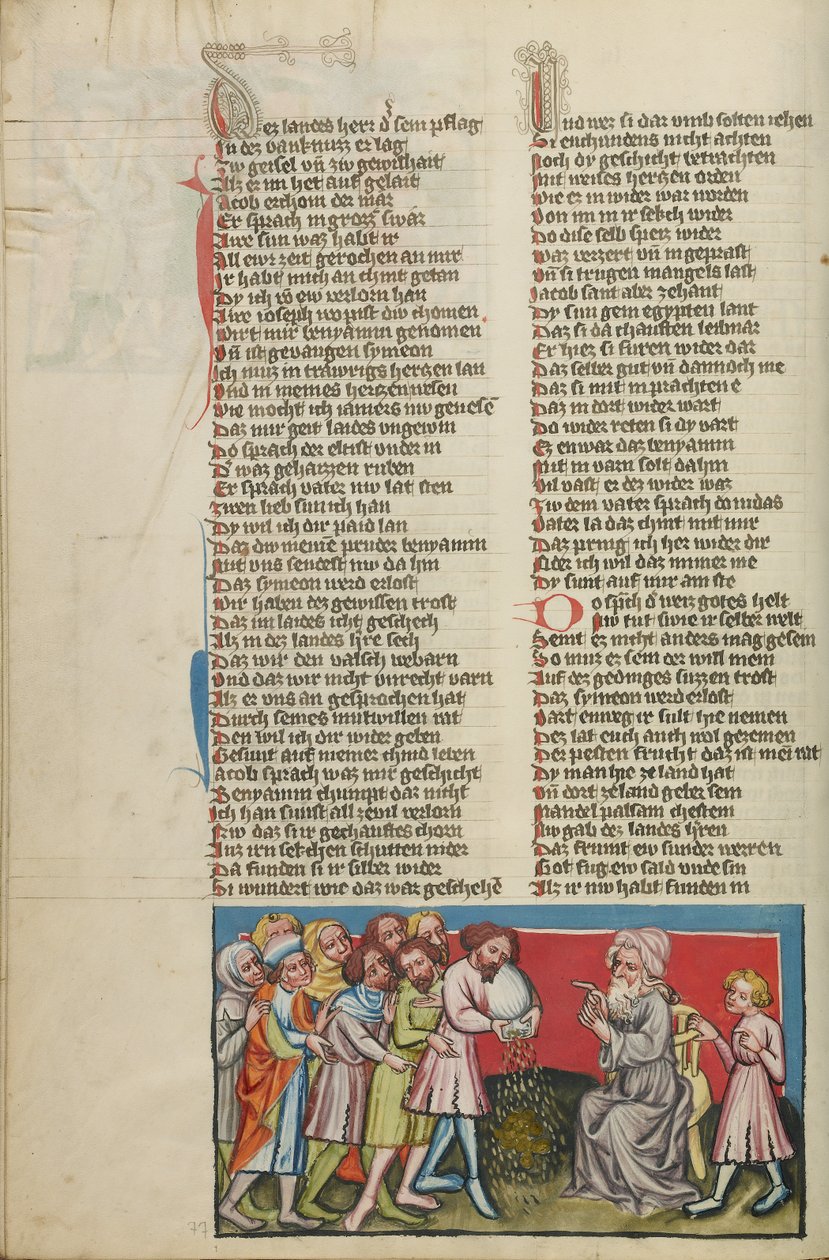 Dez landes herr d' sein pflag
In dez vanknuzz er lag
Zw geisel vn̄ zw gewishait
Alz er im het auf gelait
Jacob erchom der mär
Er sprach in grozz swär
Awe sun waz habt ir
All ewr zeit gerochen an mir
Ir habt mich an chint getan
Dy ich võ ew verlorn han
Awe ioseph wo pist dw chomen
Wirt mir benyamin genomen
Vn̄ ist gevangen symeon
Ich muz in trawrigs herczen lan
Vnd in meines herczen wesen
Wie mocht ich iamers nw genesē
Daz mir geit laides vngewin
Do sprach der eltist vnder in
D' waz gehaizzen ruben
Er sprach vater nw lat sten
Zwen lieb sun ich han
Dy wil ich dir paid lan
Daz dw meinē pruder benyamin
Mit vns sendest nw da hin
Daz symeon werd erlost
Wir haben dez gewissen trost
Daz im laides icht geschech
Alz in dez landes h're sech
Daz wir den valsch webarn
Vnd daz wir nicht vnrecht varn
Alz er vns an gesprochen hat
Durch seines mutwillen rat
Den wil ich dir wider geben
Gesunt auf meiner chind leben
Jacob sprach waz mir geschicht
Benyamin chumpt dar nicht
Ich han sunst all zevil verlorn
Nw daz si ir gechauftes chorn
Auz irn sekchen schutten nider
Da funden si ir silber wider
Si wundert wie daz war geschehē
Vnd wez si dar vmb solten iehen
Si enchundens nicht achten
Noch dy geschicht betrachten
Mit weises herczen orden
Wie ez in wider war worden
Von im in ir sekch wider
Do dise selb speiz wider
Waz verzert vn̄ in geprast
Vn̄ si trugen mangels last
Jacob sant aber zehant
Dy sun gein egypten lant
Daz si da chauften leibnar
Er hiez si furen wider dar
Daz selber gut vn̄ dannoch me
Daz si mit in prachten e
Daz in dort wider wart
Do wider reten si dy vart
Ez enwar daz benyamin
Mit in varn solt dahin
Vil vast er dez wider waz
Zw dem vater sprach do iudas
Vater la daz chint mit mir
Daz pring ich her wider dir
Oder ich wil daz immer me
Dy sunt auf mir am ste
Do sp̄ch d' werz gotes helt
Nw tut swie ir selber welt
Seint ez nicht anders mag gesein
So muz ez sein der will mein
Auf dez gedinges suzzen trost
Daz symeon werd erlost
Vart enweg ir sult hie nemen
Dez lat euch auch wol gezemen
Der pesten frucht daz ist mein rat
Dy man hie ze land hat
Vn̄ dort ze land geber sein
Mandel palsam chestein
Zw gab dez landes h'ren
Daz frumt ew sunder werren
Got fug ew sald vnde sin
Alz ir nw habt funden in
77